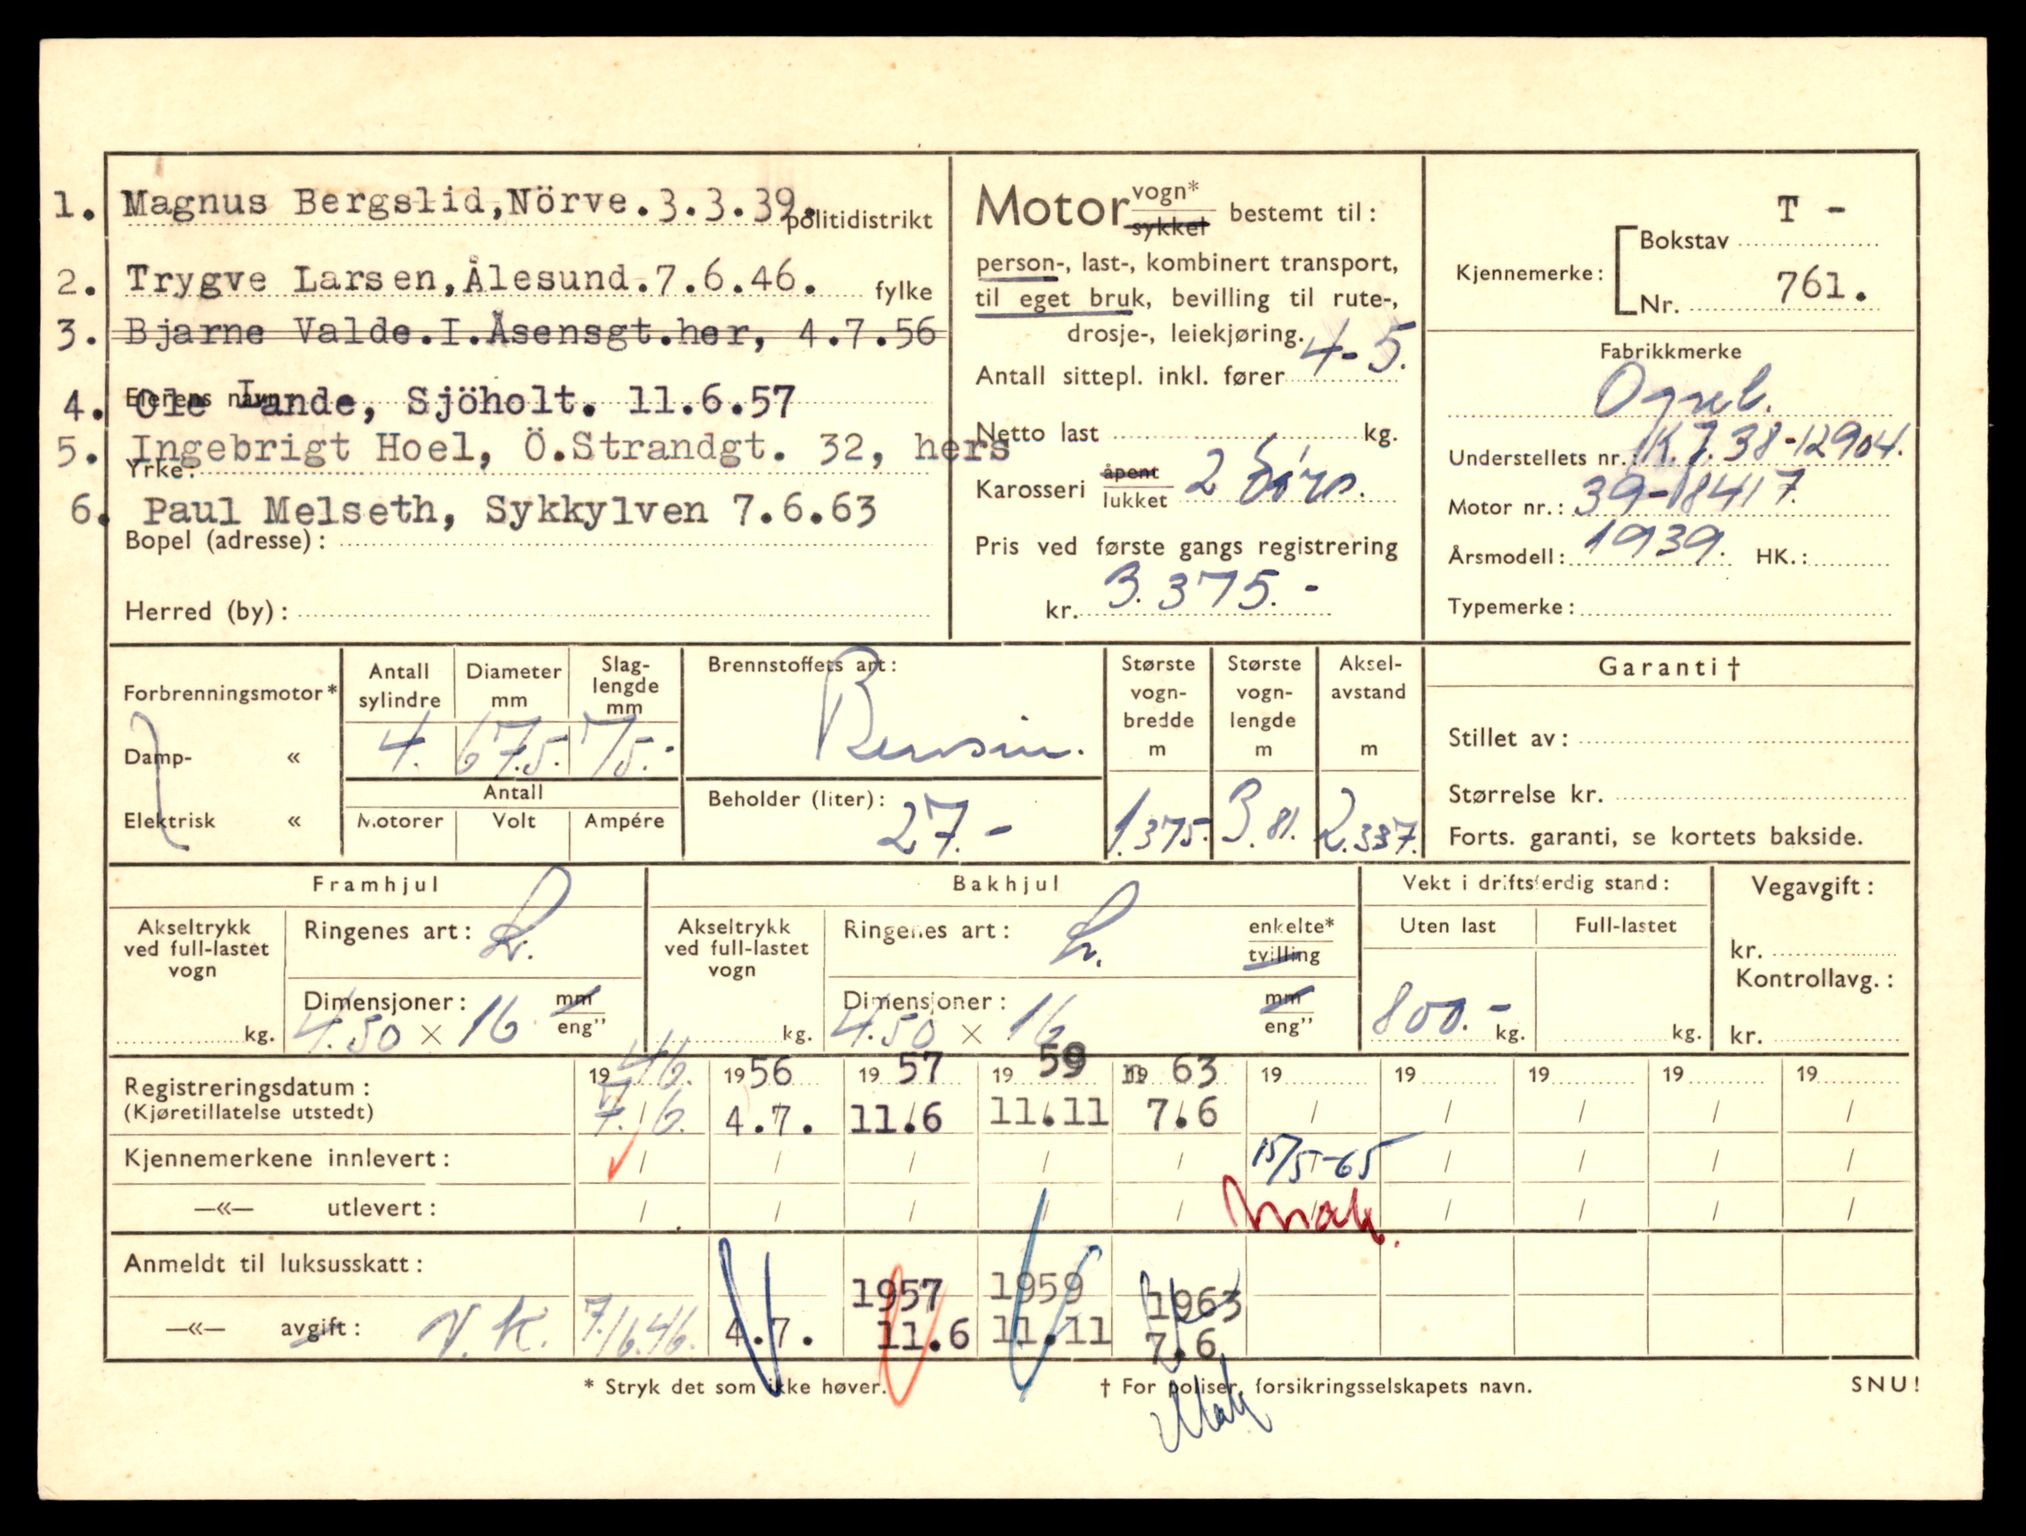 1. Magnus Bergslid, Nörve. 3.3.39. politidistrikt
2. Trygve Larsen, Ålesund. 7.6.46. fylke
3. Bjarne Valde. I. Åsensgt. her, 4.7.56
Eierens navn:
4. Ole Lande, Sjöholt. 11.6.57
5. Ingebrigt Hoel, Ö.Strandgt. 32, hers
Yrke:
6. Paul Melseth, Sykkylven 7.6.63
Bopel (adresse):
Herred (by):
Motor vogn* sykkel bestemt til:
person-, last-, kombinert transport,
til eget bruk, bevilling til rute-,
drosje-, leiekjøring.
Antall sittepl. inkl. fører 4-5.
Netto last kg.
Karosseri åpent lukket 2 dörs.
Pris ved første gangs registrering
kr. 3.375.-
Kjennemerke:
Bokstav T -
Nr. 761.
Fabrikkmerke
Opel.
Understellets nr.: K.J.38-12904.
Motor nr.: 39-18417.
Årsmodell: 1939. HK.:
Typemerke:
Forbrenningsmotor*
Damp- «
Elektrisk «
Antall sylindre Diameter mm Slag-lengde mm
4. 67.5. 75.-
Antall
Motorer Volt Ampére
Brennstoffets art:
Bensin.
Beholder (liter):
27.-
Største vogn-bredde m Største vogn-lengde m Aksel-avstand m
1.375. 3.81. 2.337.
Garanti †
Stillet av:
Størrelse kr.
Forts. garanti, se kortets bakside.
Framhjul
Akseltrykk ved full-lastet vogn
kg.
Ringenes art:
Dimensjoner: mm
4.50 × 16 eng”
Bakhjul
Akseltrykk ved full-lastet vogn
kg.
Ringenes art: enkelte* tvilling
Dimensjoner: mm
4.50 × 16 eng”
Vekt i driftsferdig stand:
Uten last Full-lastet
800.- kg. kg.
Vegavgift:
kr.
Kontrollavg.:
kr.
Registreringsdatum: 1946. 1956 19 57 19 59 19 63 19 19 19 19 19
(Kjøretillatelse utstedt) 7./6. 4.7. 11.6 11.11 7.6 / / / / /
Kjennemerkene innlevert: / / / / / 15/5-65 / / / /
—«— utlevert: / / / / / / / / /
Anmeldt til luksusskatt:
1957 1959 1963
—«— avgift: V.K. 7./6.46. 4.7. 11.6 11.11 7.6
* Stryk det som ikke høver. † For poliser, forsikringsselskapets navn. SNU!